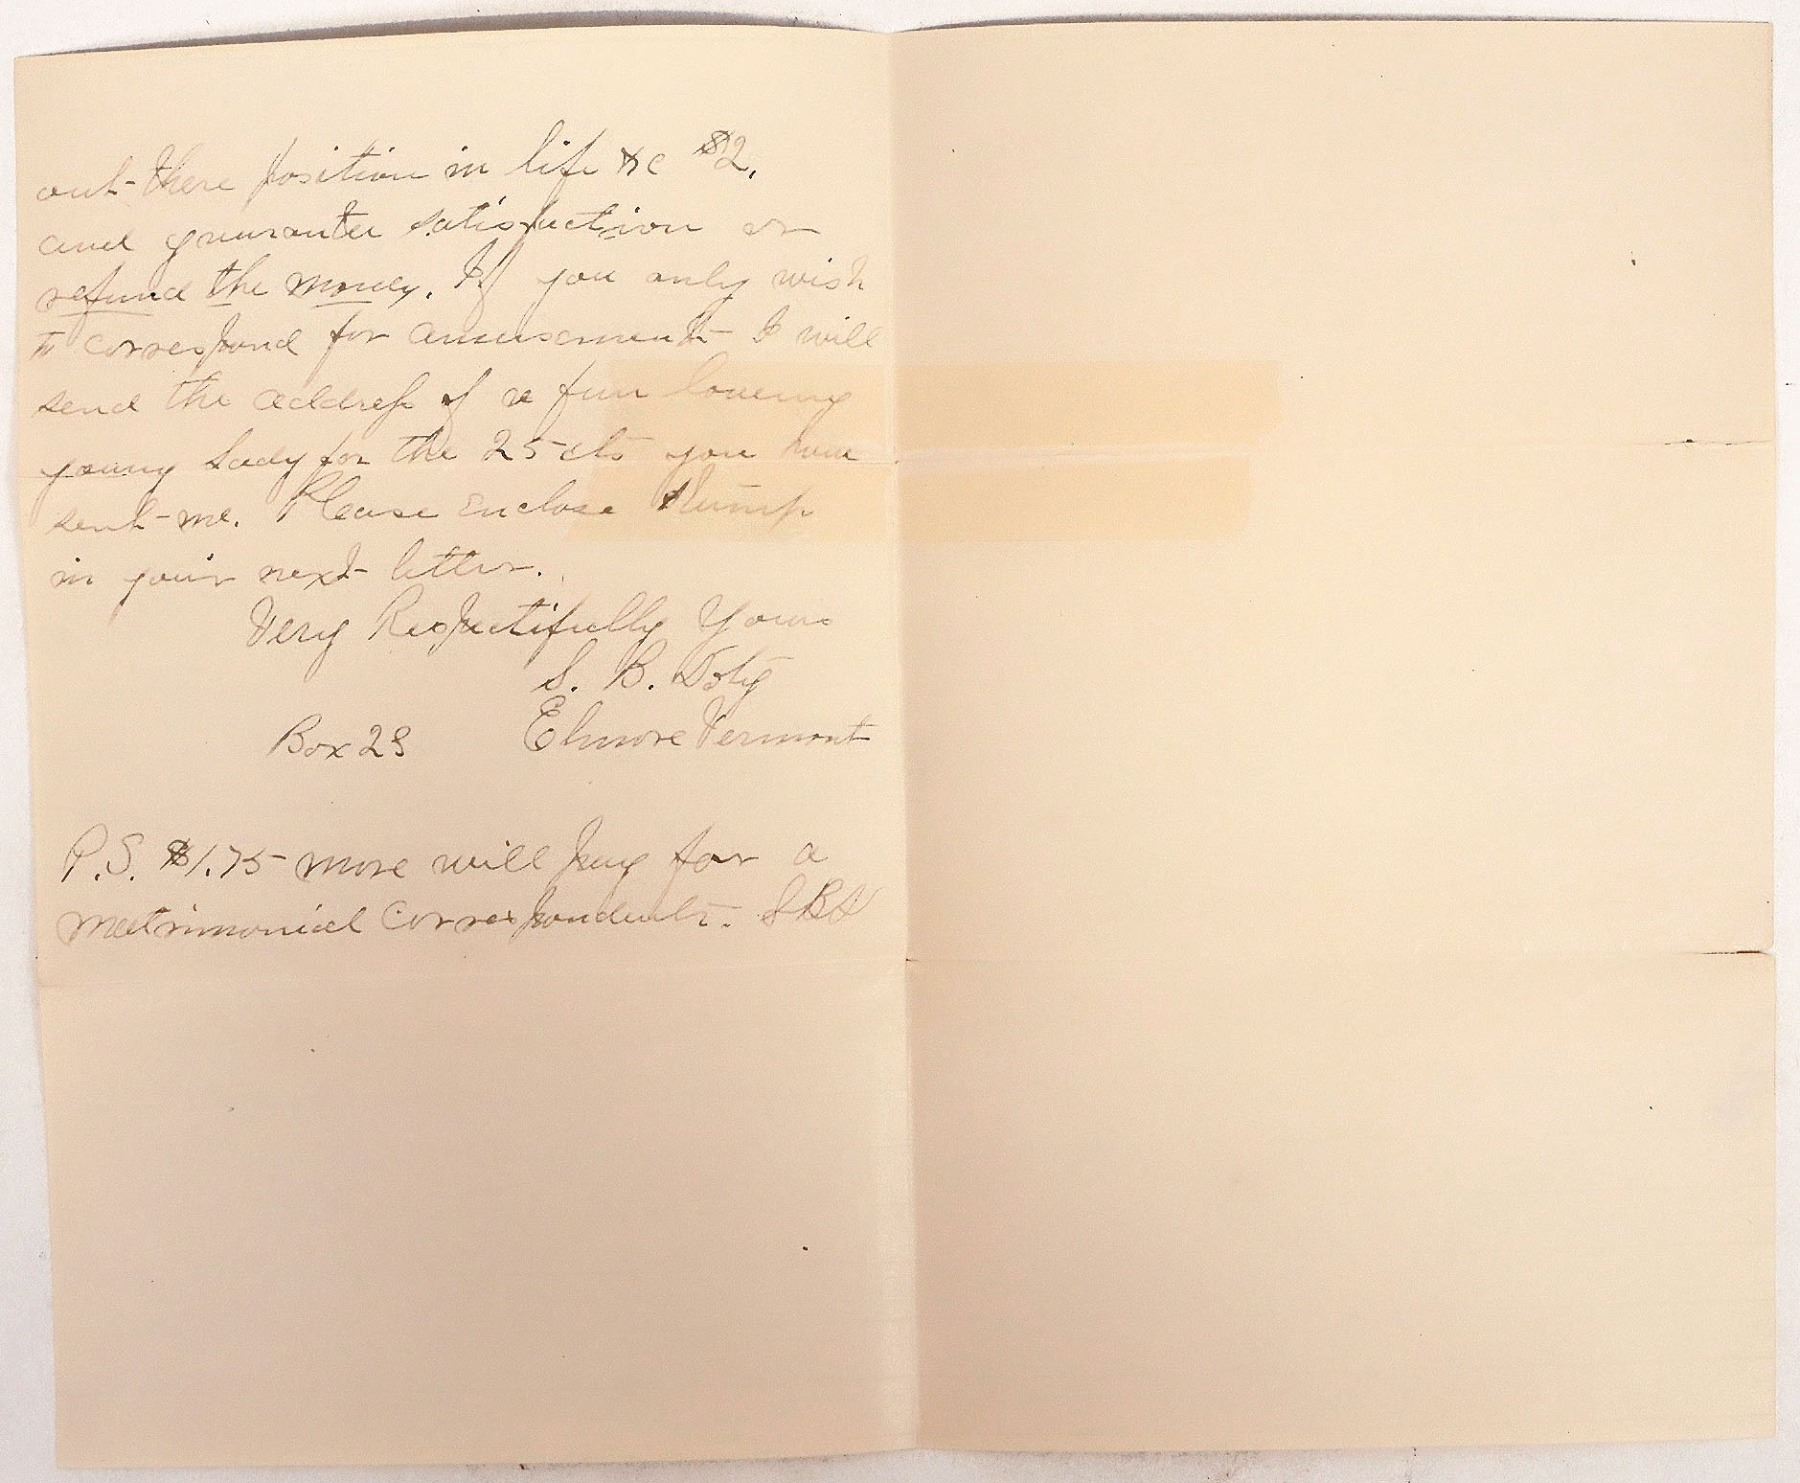 out there position in life &c $2.
and guarantee satisfaction or
refund the money. If you only wish
to correspond for amusement I will
send the address of a fun loveing
young Lady for the 25 cts you have
sent me. Please enclose stamp
in your next letter.
Very Respectifully Yours
S. B. Doty
Box 23 Elmore Vermont
P.S. $1.75 more will pay for a
matrimonial correspondents. SBD